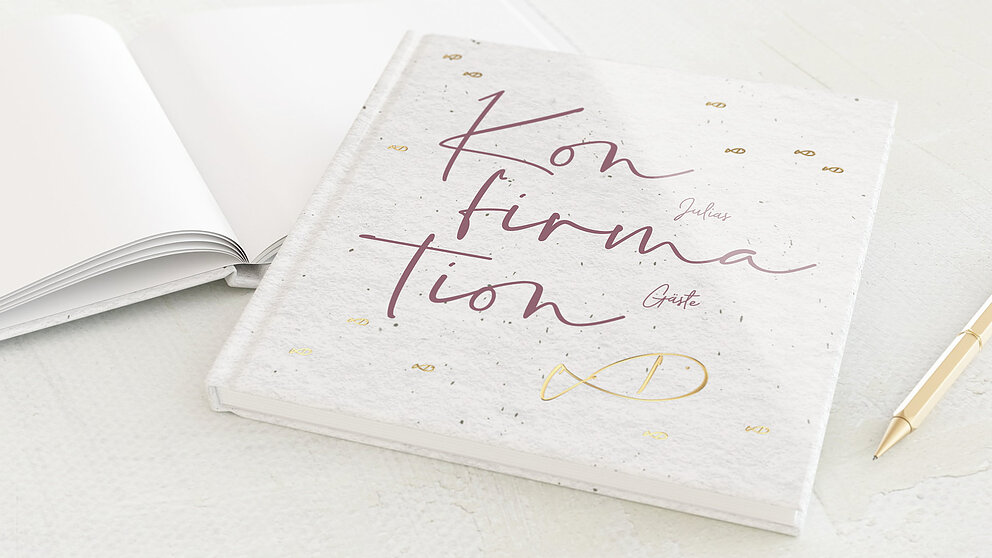 Kon
Julias
firma
Tion
Gäste